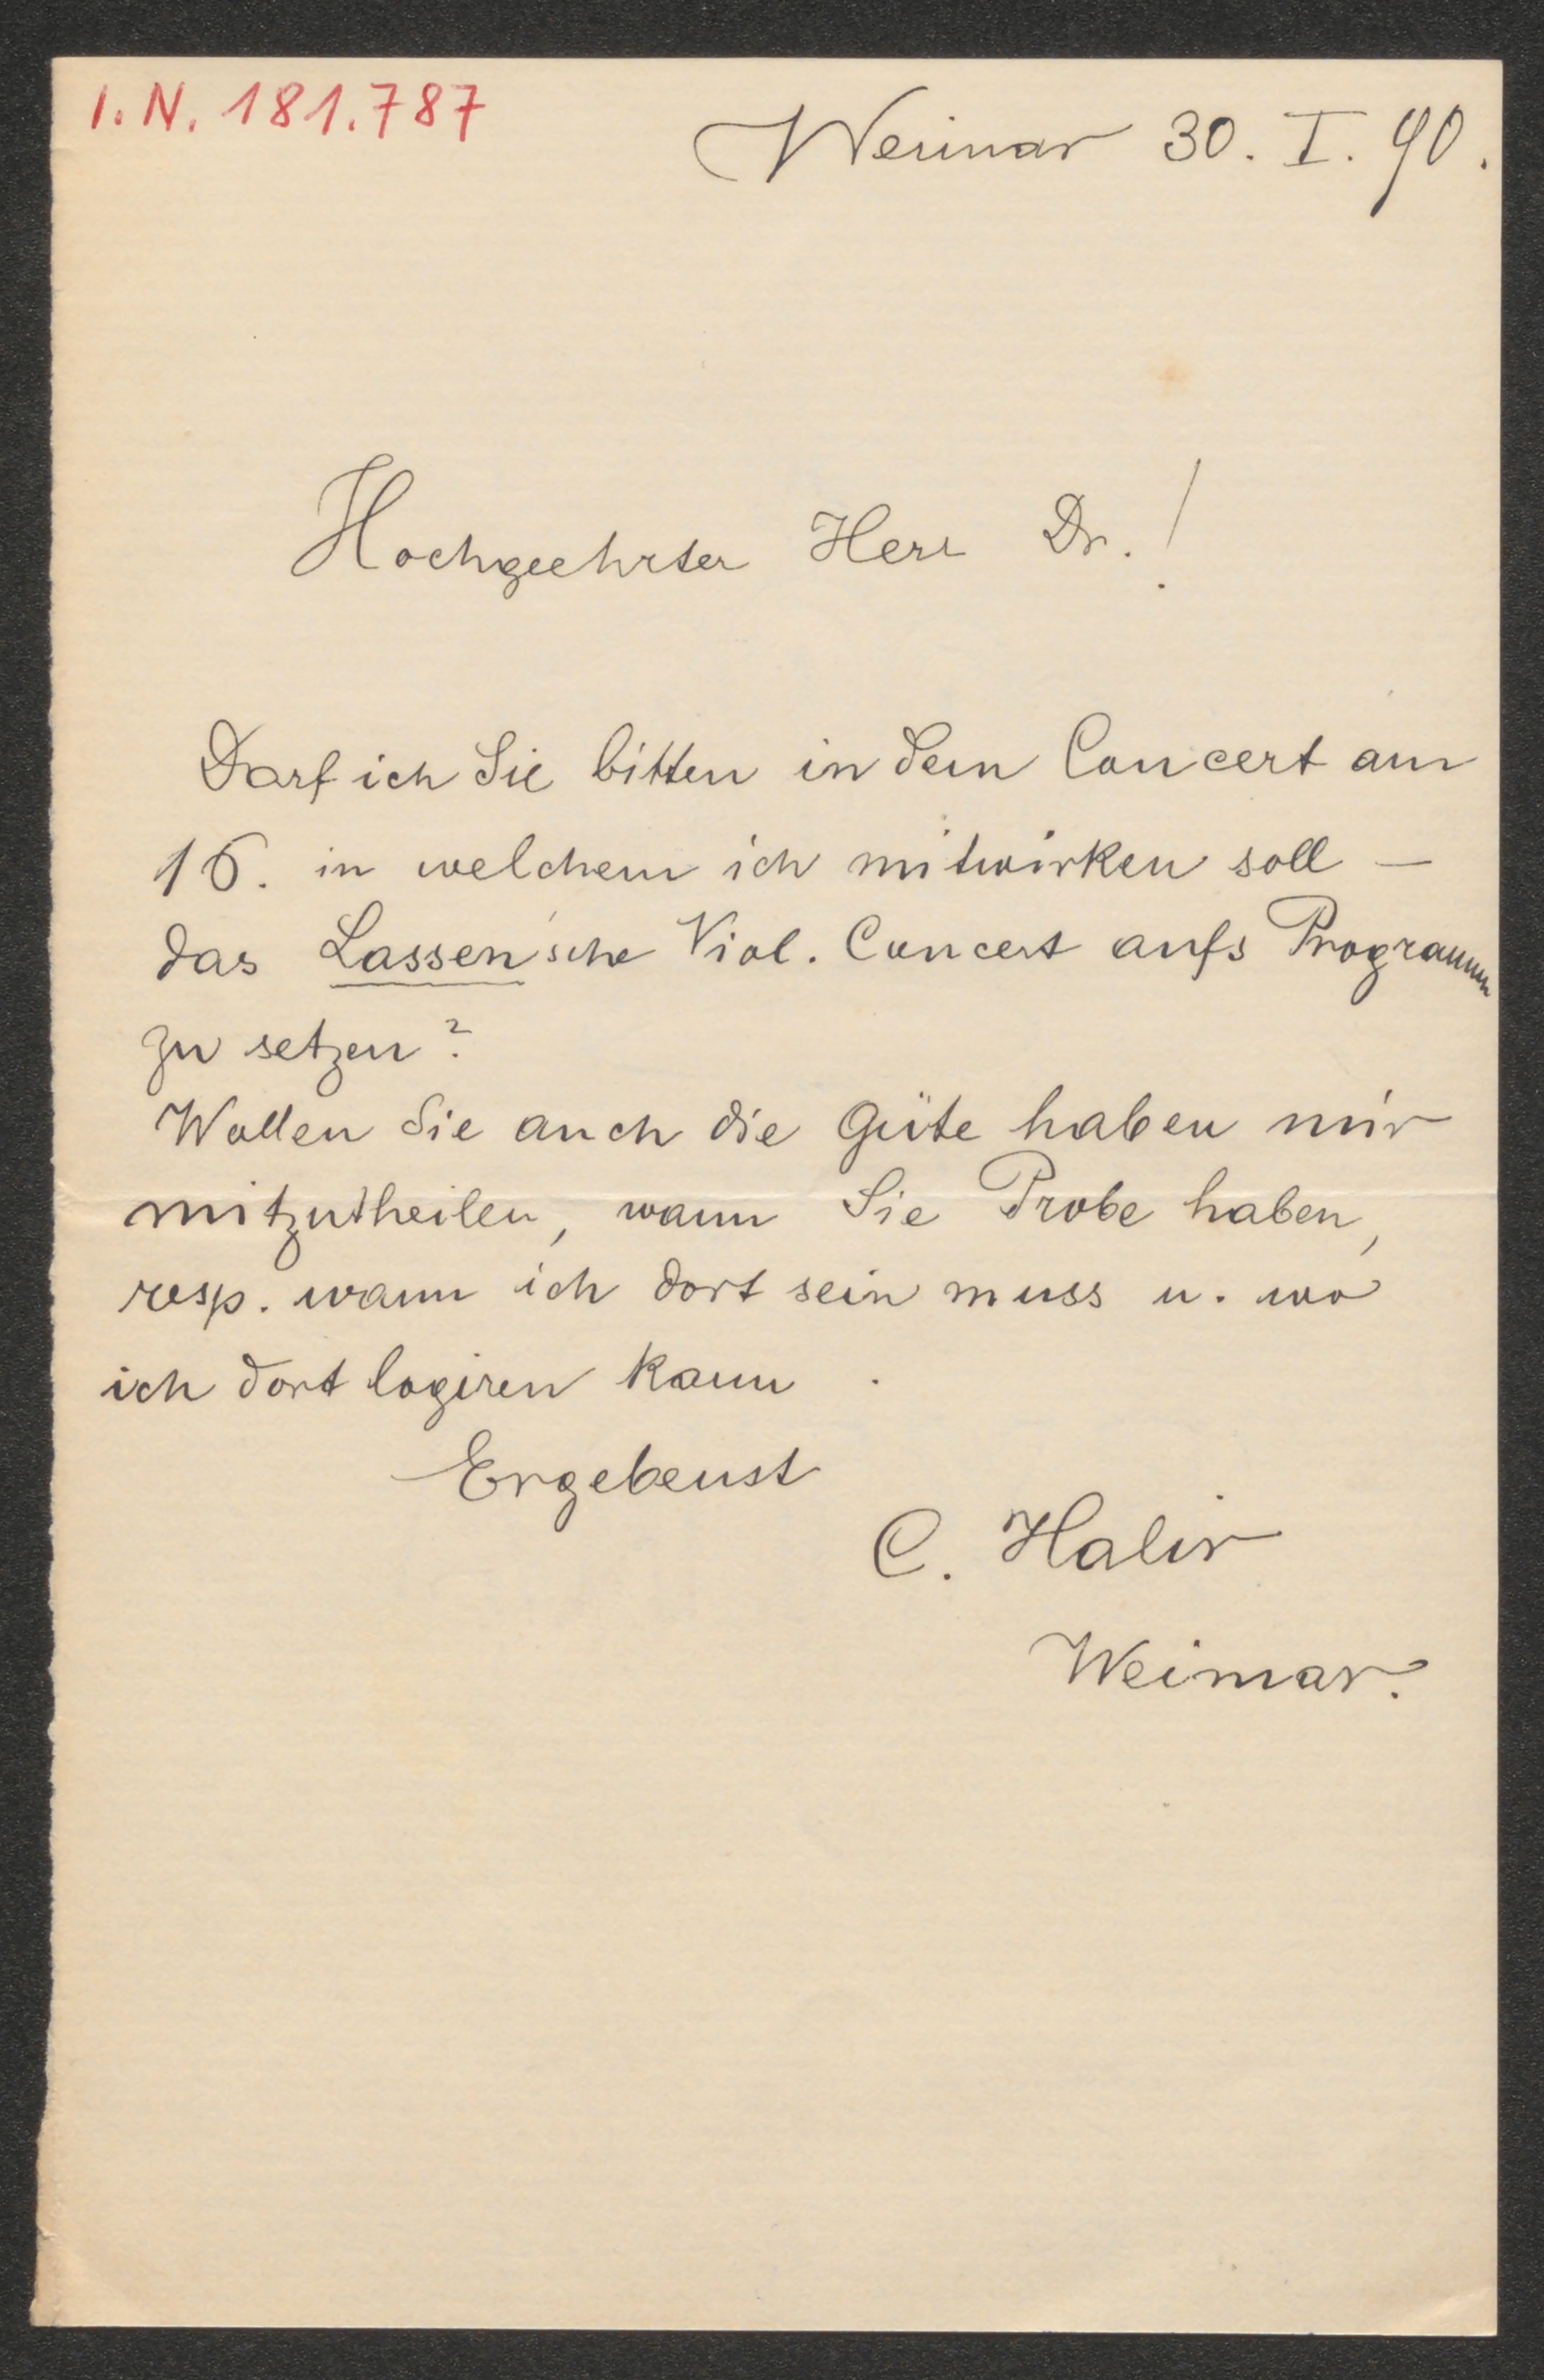 I. N. 181.787
Weimar 30. I. 90.
Hochgeehrter Herr Dr.!
Darf ich Sie bitten in dem Concert am
16. in welchem ich mitwirken soll —
das Lassen'sche Viol. Concert aufs Programm
zu setzen?
Wollen Sie auch die Güte haben mir
mitzutheilen, wann Sie Probe haben,
resp. wann ich dort sein muss u. wo
ich dort logiren kann.
Ergebenst
C. Halir
Weimar.